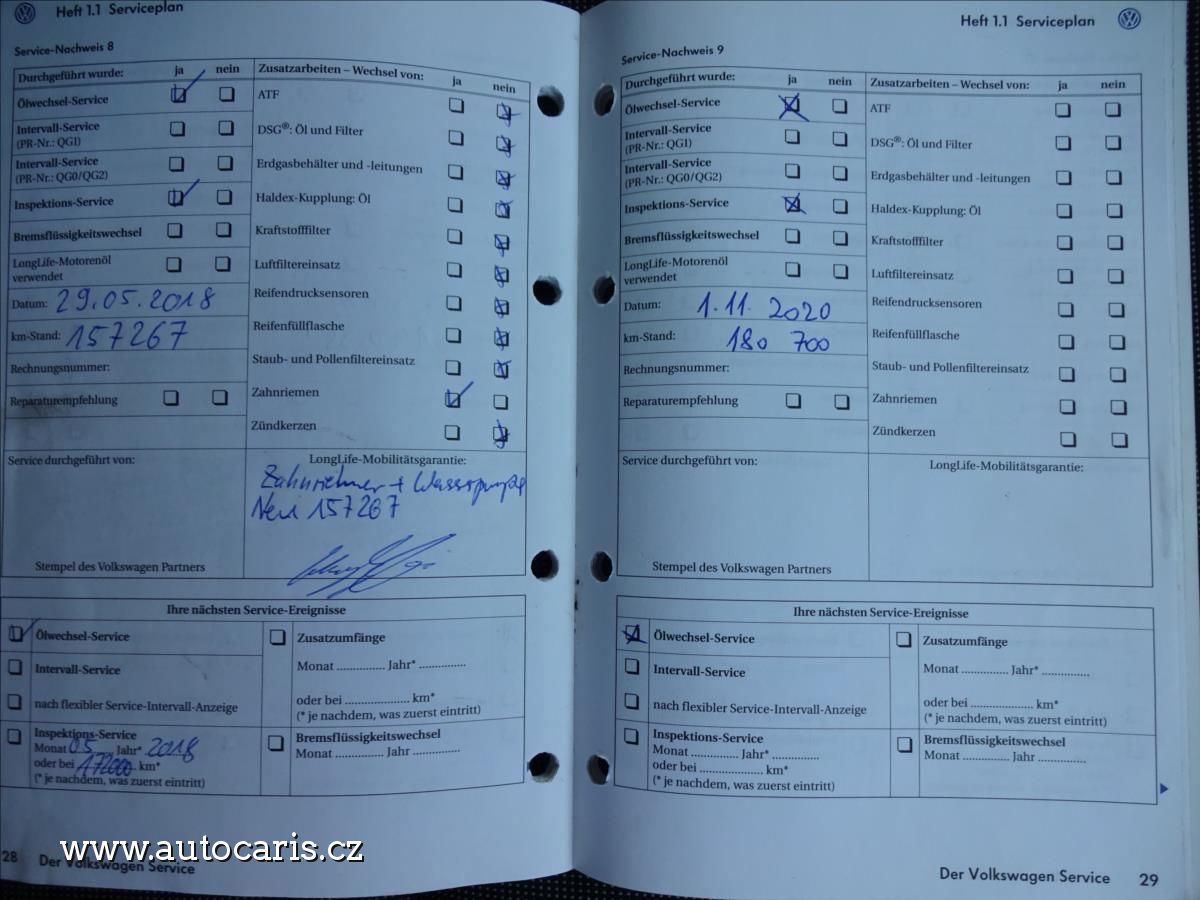 Heft 1.1 Serviceplan
Service-Nachweis 8
Durchgeführt wurde: ja nein
Ölwechsel-Service
Intervall-Service
(PR-Nr.: QG1)
Intervall-Service
(PR-Nr.: QG0/QG2)
Inspektions-Service
Bremsflüssigkeitswechsel
LongLife-Motorenöl
verwendet
Datum: 29.05.2018
km-Stand: 157267
Rechnungsnummer:
Reparaturempfehlung
Zusatzarbeiten – Wechsel von: ja nein
ATF
DSG®: Öl und Filter
Erdgasbehälter und -leitungen
Haldex-Kupplung: Öl
Kraftstofffilter
Luftfiltereinsatz
Reifendrucksensoren
Reifenfüllflasche
Staub- und Pollenfiltereinsatz
Zahnriemen
Zündkerzen
Service durchgeführt von:
Stempel des Volkswagen Partners
LongLife-Mobilitätsgarantie:
+ Wasserpumpe
Neu 157267
Ihre nächsten Service-Ereignisse
Ölwechsel-Service
Intervall-Service
nach flexibler Service-Intervall-Anzeige
Inspektions-Service
Monat 05 Jahr* 2018
oder bei 172000 km*
(* je nachdem, was zuerst eintritt)
Zusatzumfänge
Monat ............... Jahr* ...............
oder bei ..................... km*
(* je nachdem, was zuerst eintritt)
Bremsflüssigkeitswechsel
Monat ............... Jahr ...............
28 Der Volkswagen Service
www.autocaris.cz
Heft 1.1 Serviceplan
Service-Nachweis 9
Durchgeführt wurde: ja nein
Ölwechsel-Service
Intervall-Service
(PR-Nr.: QG1)
Intervall-Service
(PR-Nr.: QG0/QG2)
Inspektions-Service
Bremsflüssigkeitswechsel
LongLife-Motorenöl
verwendet
Datum: 1.11. 2020
km-Stand: 180 700
Rechnungsnummer:
Reparaturempfehlung
Zusatzarbeiten – Wechsel von: ja nein
ATF
DSG®: Öl und Filter
Erdgasbehälter und -leitungen
Haldex-Kupplung: Öl
Kraftstofffilter
Luftfiltereinsatz
Reifendrucksensoren
Reifenfüllflasche
Staub- und Pollenfiltereinsatz
Zahnriemen
Zündkerzen
Service durchgeführt von:
Stempel des Volkswagen Partners
LongLife-Mobilitätsgarantie:
Ihre nächsten Service-Ereignisse
Ölwechsel-Service
Intervall-Service
nach flexibler Service-Intervall-Anzeige
Inspektions-Service
Monat ............... Jahr* ...............
oder bei ..................... km*
(* je nachdem, was zuerst eintritt)
Zusatzumfänge
Monat ............... Jahr* ...............
oder bei ..................... km*
(* je nachdem, was zuerst eintritt)
Bremsflüssigkeitswechsel
Monat ............... Jahr ...............
Der Volkswagen Service 29